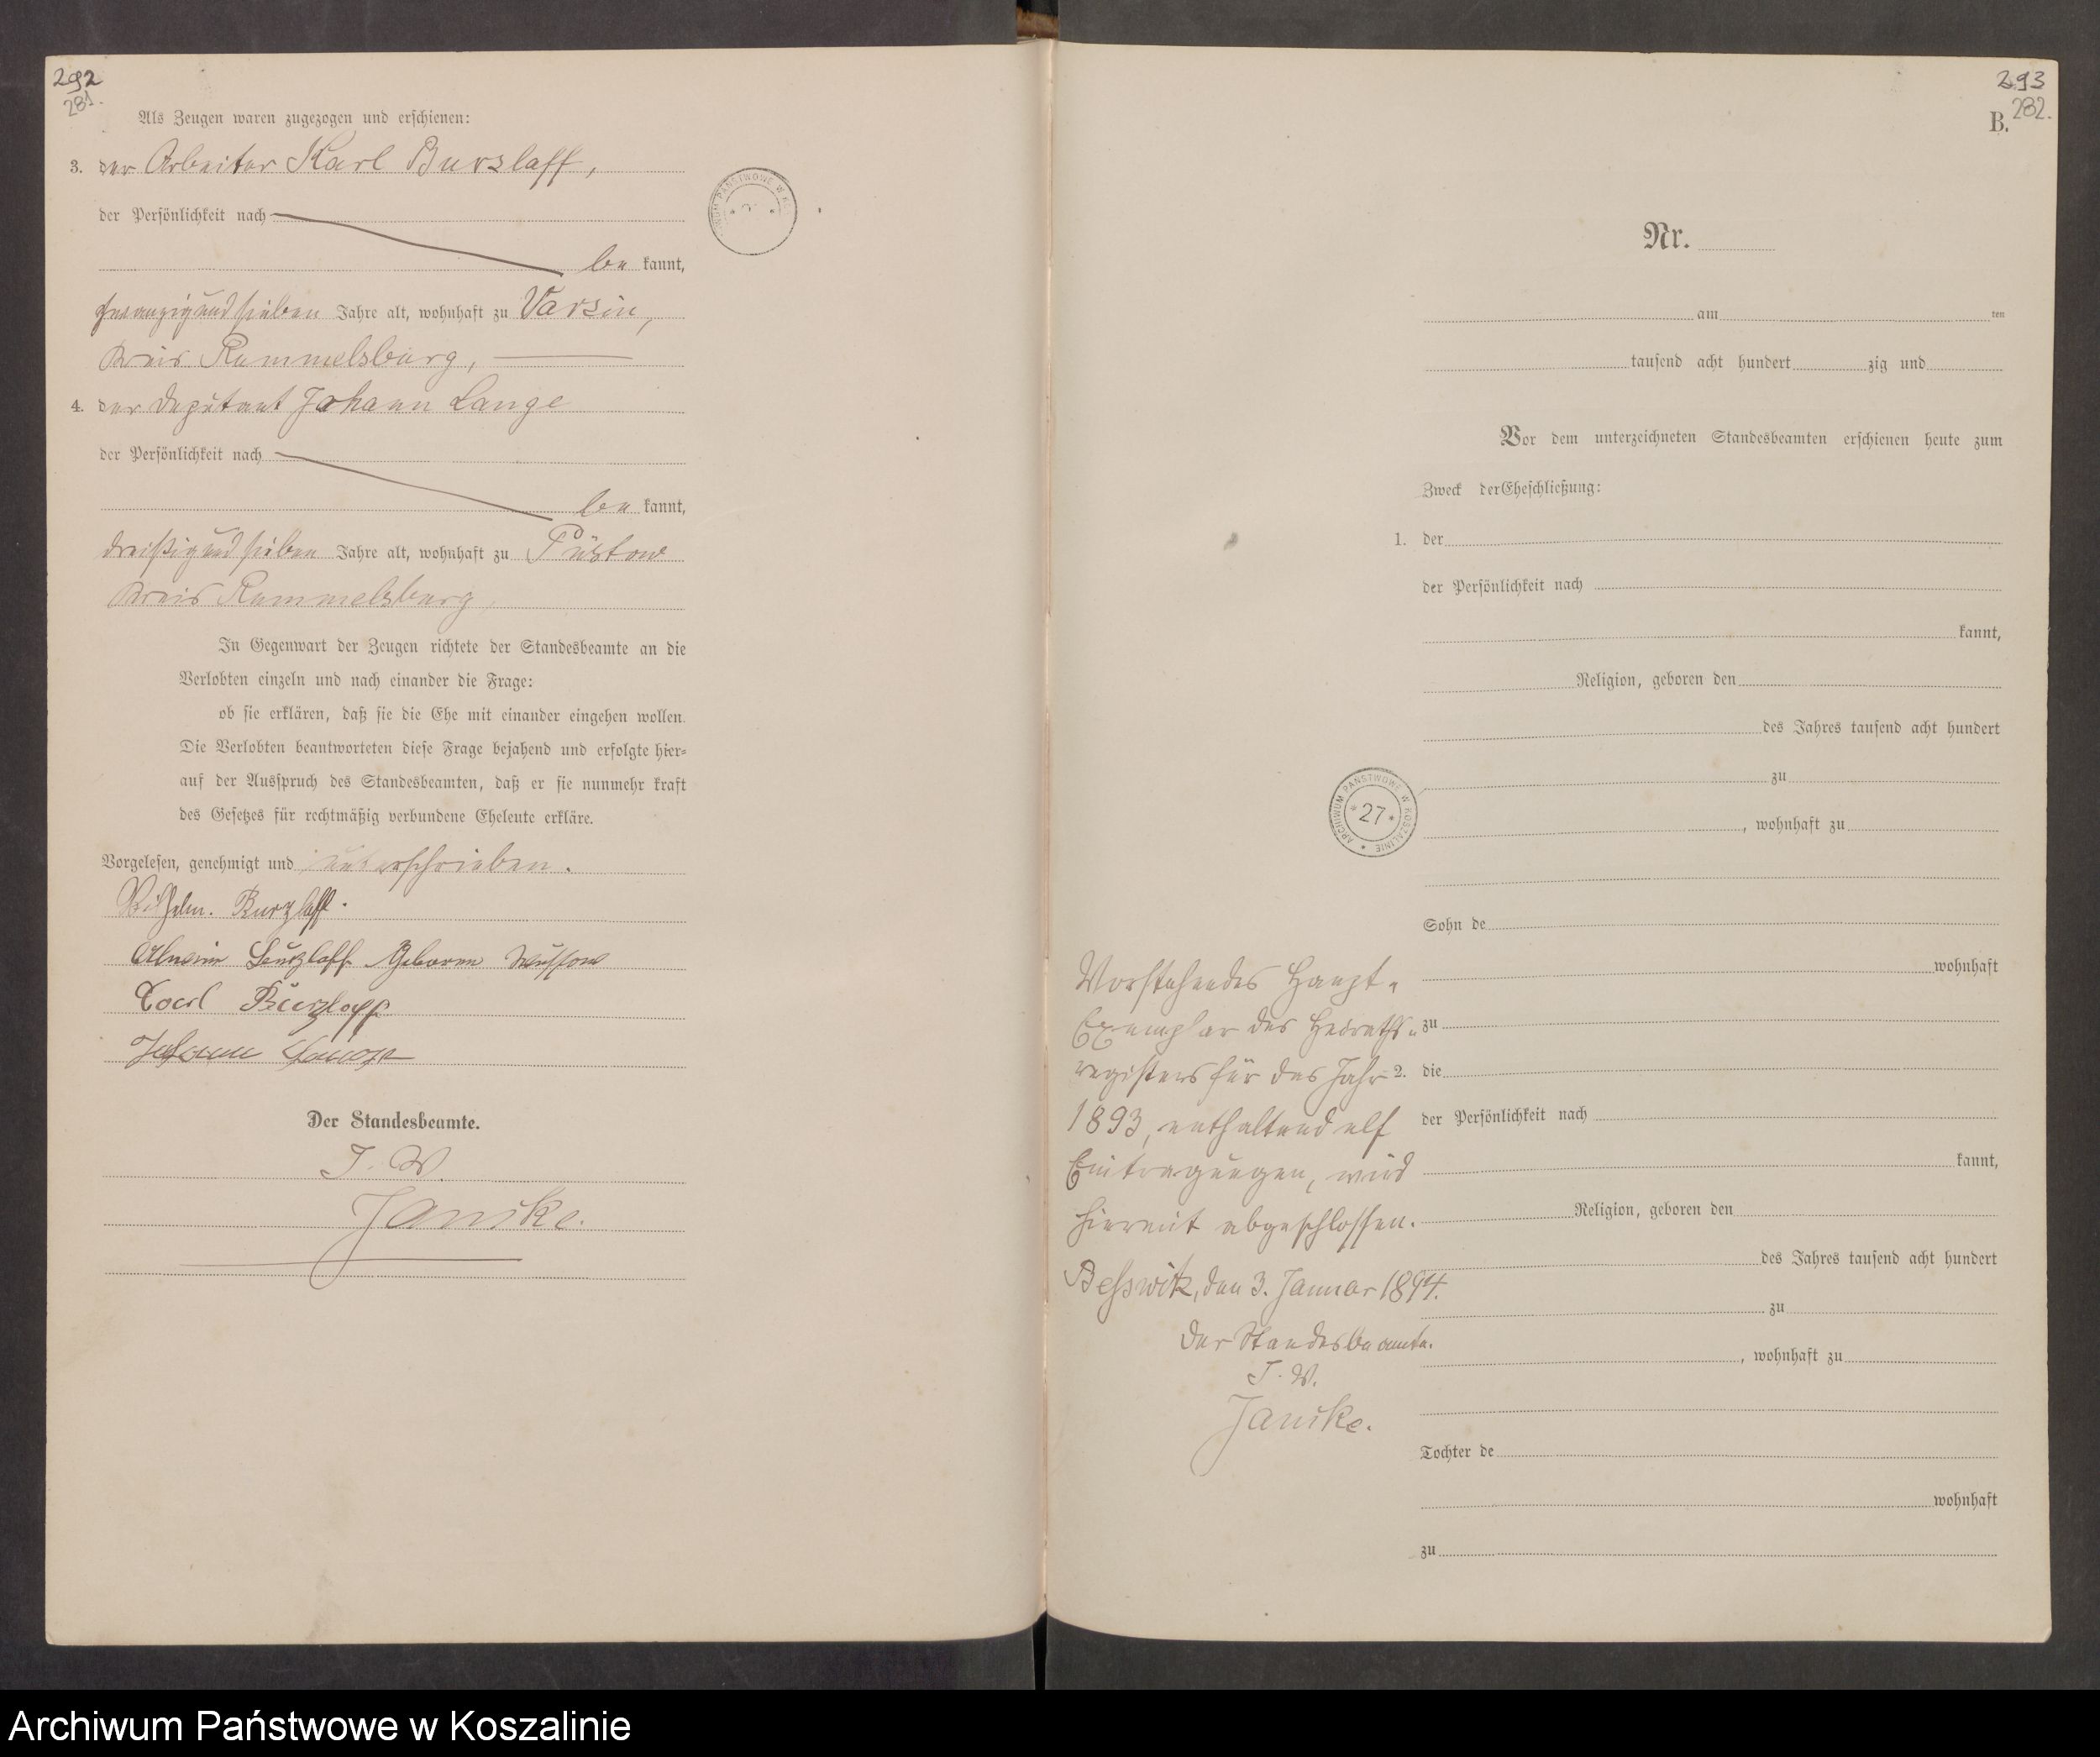 292
281.
Als Zeugen waren zugezogen und erschienen:
3. der Arbeiter Karl Burzlaff,
der Persönlichkeit nach
be kannt,
zwanzig und sieben Jahre alt, wohnhaft zu Varzin,
Kreis Rummelsburg,
4. der Deputant Johann Lange
der Persönlichkeit nach
be kannt,
dreißig und sieben Jahre alt, wohnhaft zu Püstow
Kreis Rummelsburg,
In Gegenwart der Zeugen richtete der Standesbeamte an die
Verlobten einzeln und nach einander die Frage:
ob sie erklären, daß sie die Ehe mit einander eingehen wollen.
Die Verlobten beantworteten diese Frage bejahend und erfolgte hier-
auf der Ausspruch des Standesbeamten, daß er sie nunmehr kraft
des Gesetzes für rechtmäßig verbundene Eheleute erkläre.
Vorgelesen, genehmigt und unterschrieben.
Wilhelm. Burzlaff.
Burzlaff Geborne Wussow
Carl Burzlaff
Johann Lange
Der Standesbeamte.
I. V.
Janike.
293
282.
B.
Nr.
am ten
tausend acht hundert zig und
Vor dem unterzeichneten Standesbeamten erschienen heute zum
Zweck der Eheschließung:
1. der
der Persönlichkeit nach
kannt,
Religion, geboren den
des Jahres tausend acht hundert
zu
ARCHIWUM PAŃSTWOWE W KOSZALINIE
* 27 *
, wohnhaft zu
Sohn de
wohnhaft
zu
2. die
der Persönlichkeit nach
kannt,
Religion, geboren den
des Jahres tausend acht hundert
zu
, wohnhaft zu
Tochter de
wohnhaft
zu
Vorstehendes Haupt-
Exemplar des Heiraths-
registers für das Jahr
1893, enthaltend elf
Eintragungen, wird
hiermit abgeschlossen.
Besswitz, den 3. Januar 1894.
Der Standesbeamte.
I. V.
Janike.
Archiwum Państwowe w Koszalinie